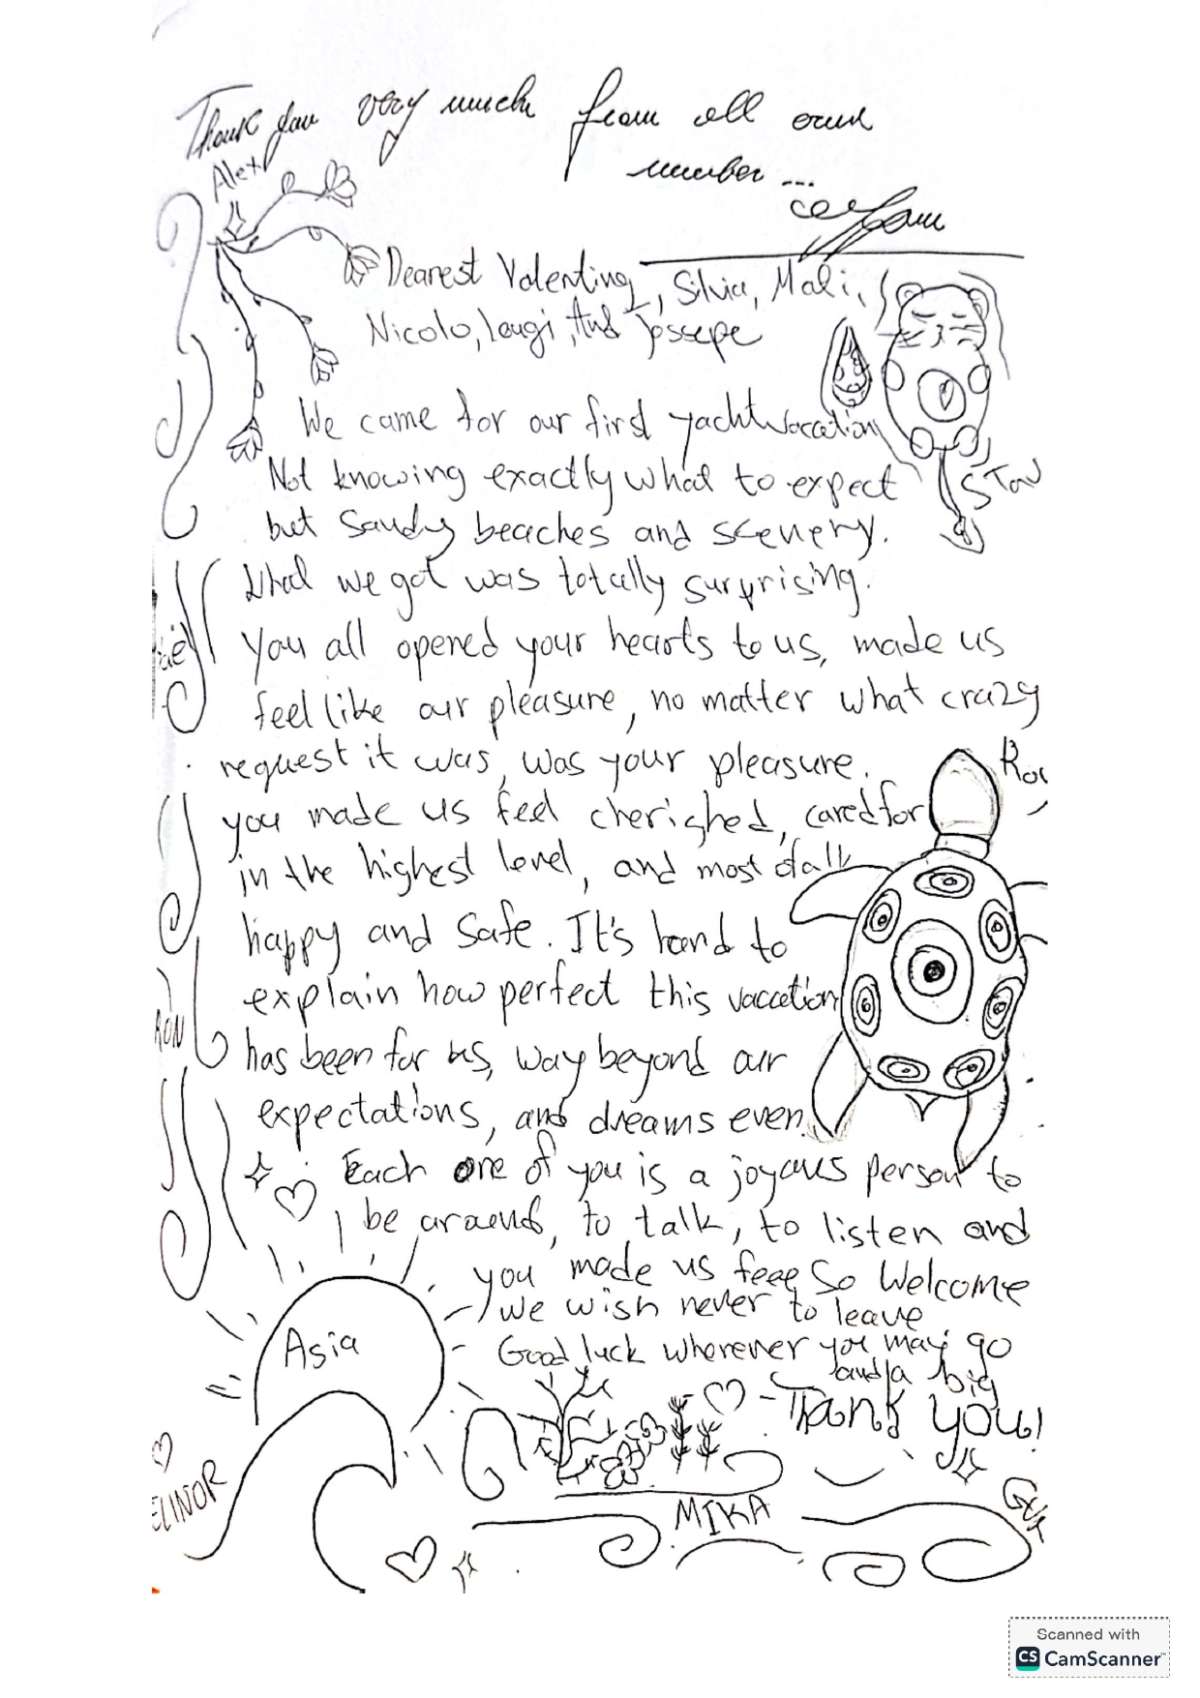 Thank you very much from all our
number...
Alex
Dearest Valentina, Silvia, Mali,
Nicolo, Leugi, And Josseppe
We came for our first yacht vaccation
Not knowing exactly what to expect
STAV
but Sandy beaches and scenery.
What we got was totally surprising.
You all opened your hearts to us, made us
feel like our pleasure, no matter what crazy
request it was, was your pleasure.
you made us feel cherished, cared for
in the highest level, and most of all
happy and safe. It's hard to
explain how perfect this vaccation
RON
has been for us, way beyond our
expectations, and dreams even.
Each one of you is a joyous person to
be around, to talk, to listen and
you made us feel So Welcome
we wish never to leave
Asia
Good luck wherever you may go
and a big
Thank you!
ELINOR
MIKA
Scanned with
CS CamScanner